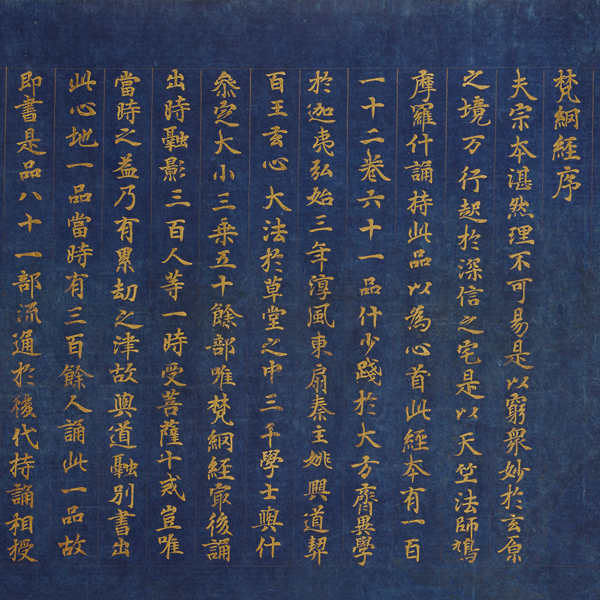 梵網經序
夫宗本湛然理不可易是以窮衆妙於玄原
之境万行起於深信之宅是以天竺法師鳩
摩羅什誦持此品以為心首此經本有一百
一十二卷六十一品什少踐於大方齊異學
於迦夷弘始三年淳風東扇秦主姚興道契
百王玄心大法於草堂之中三千學士與什
叅定大小三乗五十餘部唯梵網經冣後誦
出時融影三百人等一時受菩薩十戒豈唯
當時之益乃有累劫之津故與道融別書出
此心地一品當時有三百餘人誦此一品故
即書是品八十一部流通於後代持誦相授